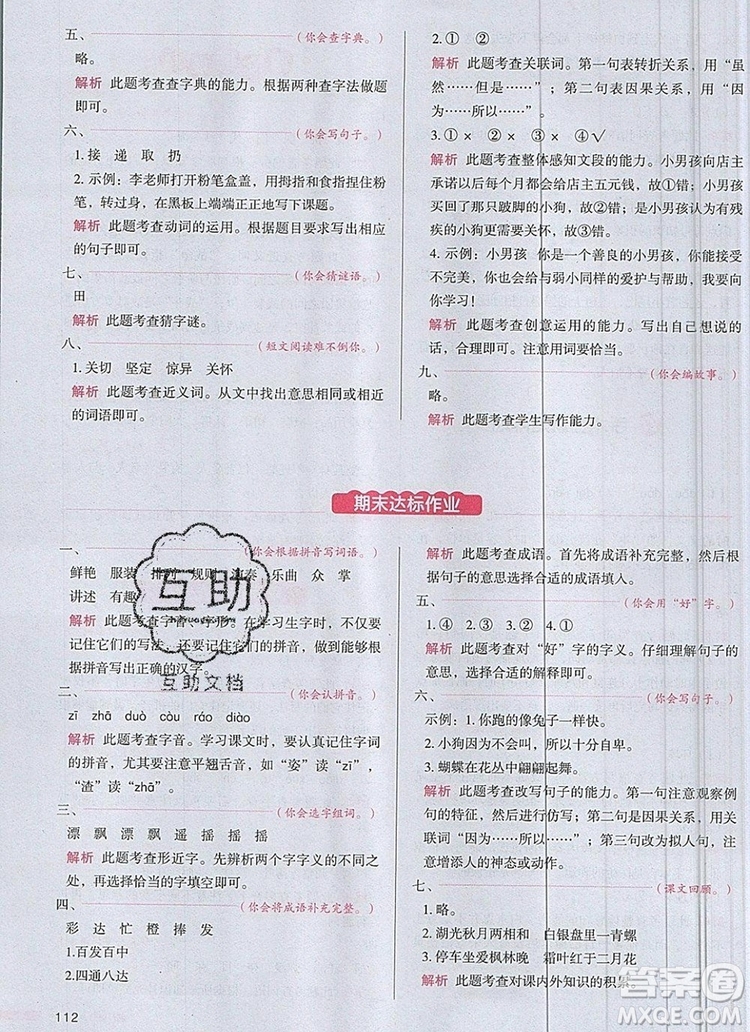 五、（你会查字典。）
略。
解析 此题考查查字典的能力。根据两种查字法做题
即可。
六、（你会写句子。）
1.接 递 取 扔
2.示例：李老师打开粉笔盒盖，用拇指和食指捏住粉
笔，转过身，在黑板上端端正正地写下课题。
解析 此题考查动词的运用。根据题目要求写出相应
的句子即可。
七、（你会猜谜语。）
田
解析 此题考查猜字谜。
八、（短文阅读难不倒你。）
1.关切 坚定 惊异 关怀
解析 此题考查近义词。从文中找出意思相同或相近
的词语即可。
2.① ②
解析 此题考查关联词。第一句表转折关系，用“虽
然……但是……”；第二句表因果关系，用“因
为……所以……”。
3.①× ②× ③× ④√
解析 此题考查整体感知文段的能力。小男孩向店主
承诺以后每个月都会还给店主五元钱，故①错；小男孩
买回了那只跛脚的小狗，故②错；小男孩认为有残
疾的小狗和其它小狗价值相同，故③错。
4.示例：小男孩 你是一个善良的小男孩，你能接受
不完美，你总会给与弱小同样的爱护与帮助，我要向
你学习！
解析 此题考查创意运用的能力。写出自己想说的
话，合理即可。注意用词要恰当。
九、（你会编故事。）
略。
解析 此题考查学生写作能力。
期末达标作业
一、（你会根据拼音写词语。）
鲜艳 服装 排 规则 奏 乐曲 众 掌
讲述 有趣
解析 此题考查字音、字形。在学习生字时，不仅要
记住它们的写法，还要记住它们的拼音，
根据拼音写出正确的汉字。
二、（你会认拼音。）
zī zhā duò còu ráo diào
解析 此题考查字音。学习课文时，要认真识记字词
的拼音，尤其注意平翘舌音，如“姿”读“zī”，
“渣”读“zhā”。
三、（你会选字组词。）
漂 飘 漂 飘 遥 摇 摇 摇
解析 此题考查形近字。先辨析两个字字义的不同之
处，再选择恰当的字填空即可。
四、（你会将成语补充完整。）
彩 达 忙 橙 捧 发
1.百发百中
2.四通八达
解析 此题考查成语。首先将成语补充完整，然后根
据句子的意思选择合适的成语填入。
五、（你会用“好”字。）
1.④ 2.② 3.① 4.①
解析 此题考查对“好”字的字义。仔细理解句子的
意思，选择合适的解释即可。
六、（你会写句子。）
示例：1.你跑的像兔子一样快。
2.小狗因为不会叫，所以十分难过。
3.蝴蝶在花丛中翩翩起舞。
解析 此题考查改写句子的能力。第一句注意观察例
句的特征，然后进行仿写；第二句改为因果句，用关
联词“因为……所以……”；第三句改为拟人句，注
意增添人的神态或动作。
七、（课文回顾。）
1.略。
2.湖光秋月两相和 白银盘里一青螺
3.停车坐爱枫林晚 霜叶红于二月花
解析 此题考查对课内外知识的积累。
112
互助
互助文档
答案圈
MXQE.COM